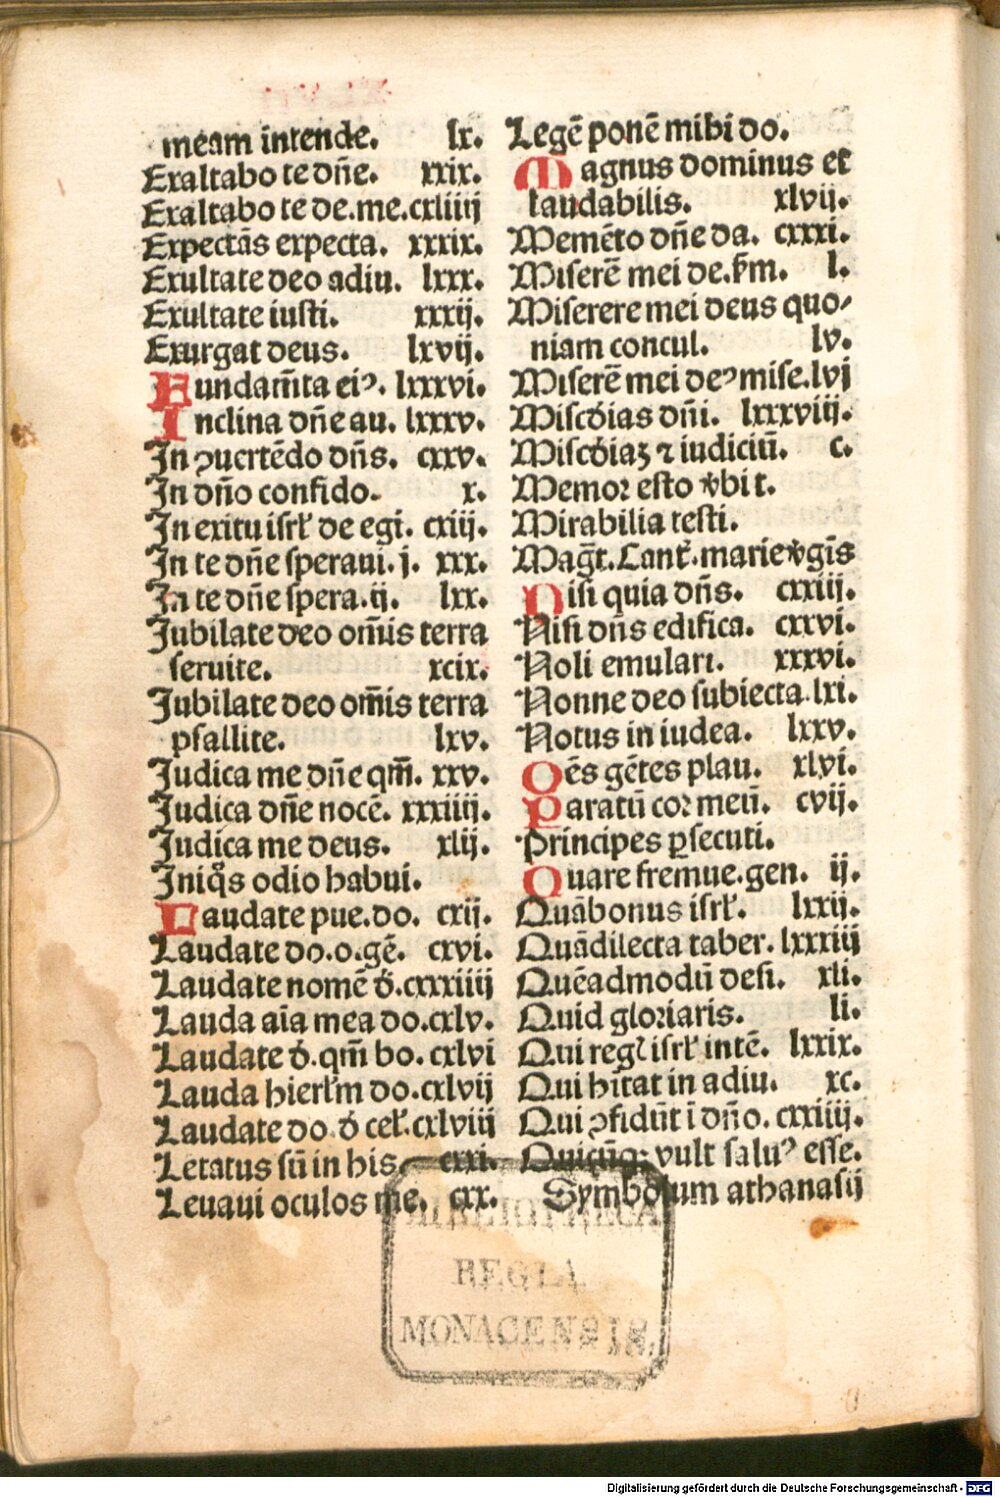 meam intende. lx.
Exaltabo te dn̄e. xxix.
Exaltabo te de.me.cxliiij
Expectās expecta. xxxix.
Exultate deo adiu. lxxx.
Exultate iusti. xxxij.
Exurgat deus. lxvij.
Fundam̄ta eiꝰ. lxxxvi.
Inclina dn̄e au. lxxxv.
In ꝯuertēdo dn̄s. cxxv.
In dn̄o confido. x.
In exitu isrl̓ de egi. cxiij.
In te dn̄e speraui. j. xxx.
In te dn̄e spera. ij. lxx.
Jubilate deo om̄is terra
seruite. xcix.
Jubilate deo om̄is terra
psallite. lxv.
Judica me dn̄e qm̄. xxv.
Judica dn̄e nocē. xxxiiij.
Judica me deus. xlij.
Iniq̊s odio habui.
Laudate pue.do. cxij.
Laudate do.o.gē. cxvi.
Laudate nomē d̓.cxxxiiij
Lauda aīa mea do.cxlv.
Laudate d̓.qm̄ bo. cxlvi
Lauda hierl̓m do.cxlvij
Laudate do d̓ cel̓.cxlviij
Letatus sū in his. cxxi.
Leuaui oculos me. cxx.
Legē ponē mihi do.
Magnus dominus et
laudabilis. xlvij.
Memēto dn̄e da. cxxxi.
Miserē mei de.ẜm. l.
Miserere mei deus quo⸗
niam concul. lv.
Miserē mei deꝰ mise.lvj
Misc̓dias dn̄i. lxxxviij.
Misc̓diaꝫ ⁊ iudiciū. c.
Memor esto v̓bi t.
Mirabilia testi.
Mag̅t. Cant̓. marie v̓gīs
Nisi quia dn̄s. cxxiij.
Nisi dn̄s edifica. cxxvi.
Noli emulari. xxxvi.
Nonne deo subiecta.lxi.
Notus in iudea. lxxv.
Oēs gētes plau. xlvi.
Paratū cor meū. cvij.
Principes ꝑsecuti.
Quare fremue.gen. ij.
Quā bonus isrl̓. lxxij.
Quā dilecta taber. lxxxiij
Quēadmodū desi. xli.
Quid gloriaris. li.
Qui regl̓ isrl̓ intē. lxxix.
Qui hītat in adiu. xc.
Qui ꝯfidūt ī dn̄o. cxxiiij.
Quicūqꝫ vult saluꝰ esse.
Symbolum athanasij
BIBLIOTHECA
REGIA
MONACENSIS.
Digitalisierung gefördert durch die Deutsche Forschungsgemeinschaft - DFG